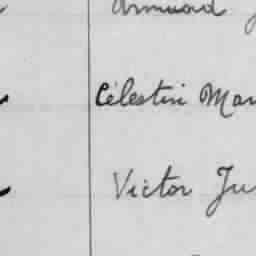 Armand
Célestin Mar
Victor Ju